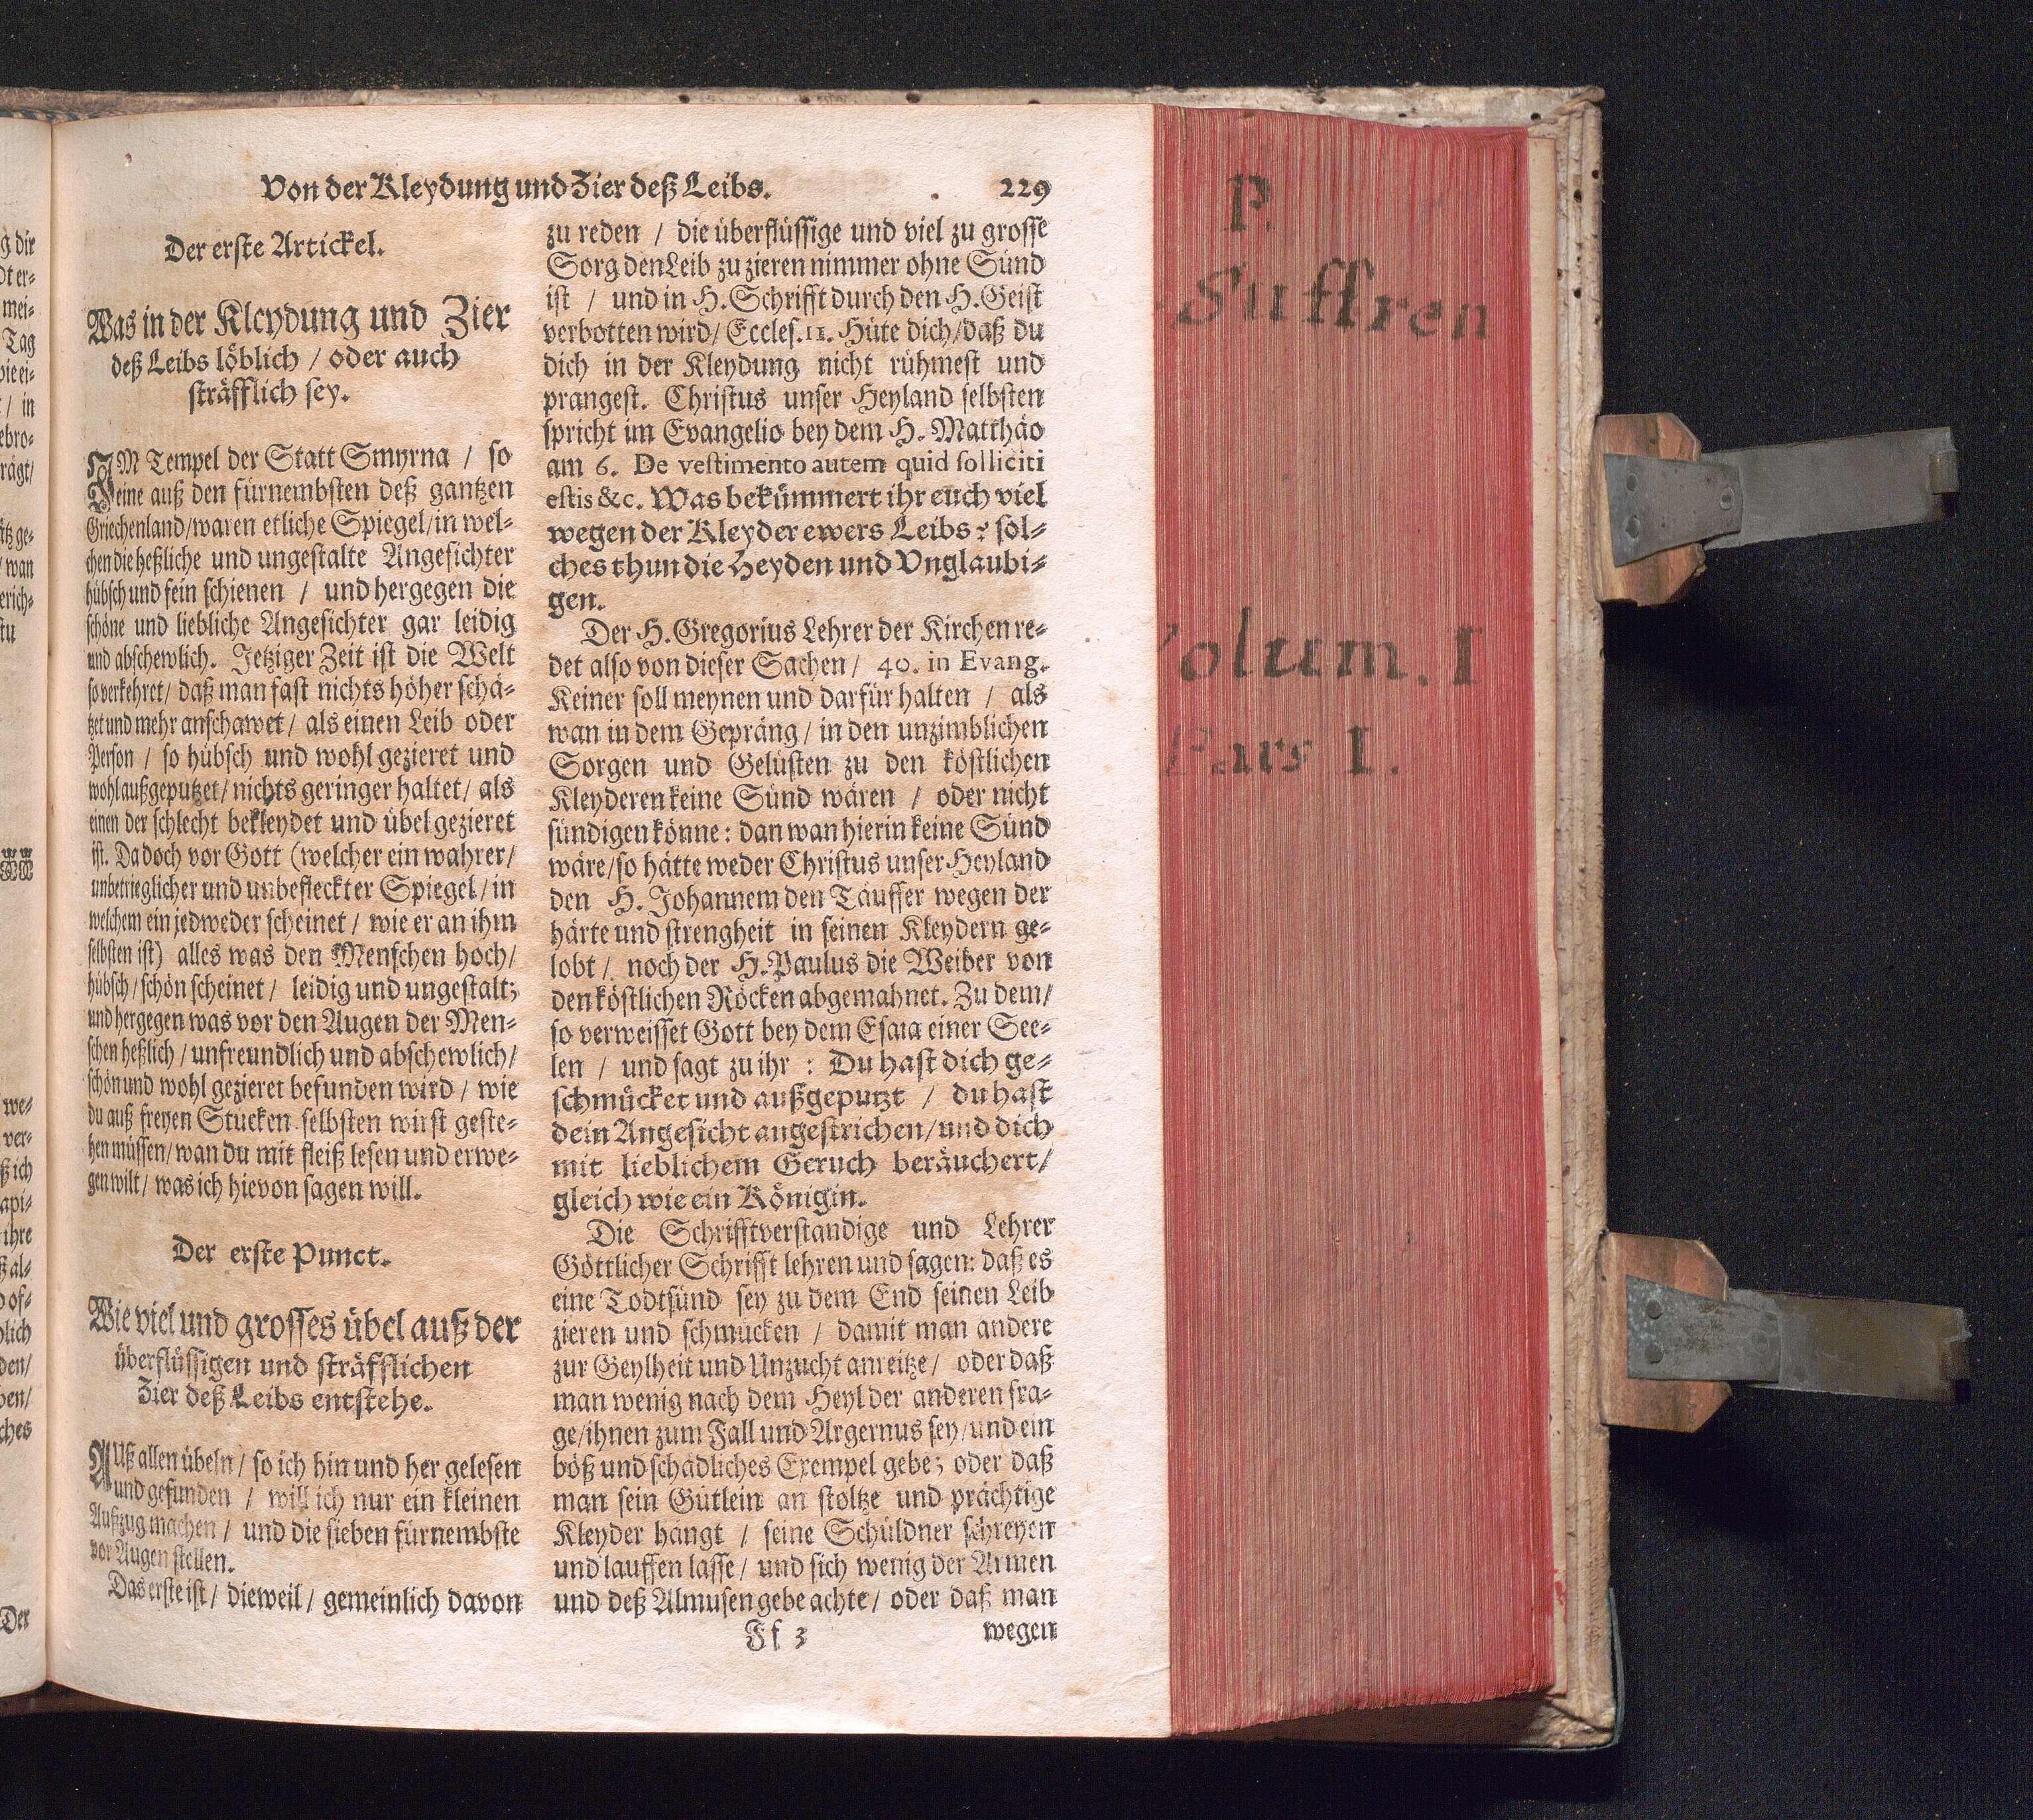 Von der Kleydung und Zier deß Leibs. 229
Der erste Artickel.
Was in der Kleydung und Zier
deß Leibs löblich / oder auch
sträfflich sey.
IM Tempel der Statt Smyrna / so
eine auß den fürnembsten deß gantzen
Griechenland/waren etliche Spiegel/in wel-
chen die heßliche und ungestalte Angesichter
hübsch und fein schienen / und hergegen die
schöne und liebliche Angesichter gar leidig
und abschewlich. Jetziger Zeit ist die Welt
so verkehret/ daß man fast nichts höher schä-
tzet und mehr anschawet/ als einen Leib oder
Person / so hübsch und wohl gezieret und
wohl außgeputzet/ nichts geringer haltet/ als
einen der schlecht bekleydet und übel gezieret
ist. Da doch vor Gott (welcher ein wahrer/
unbetrieglicher und unbefleckter Spiegel/ in
welchem ein jedweder scheinet/ wie er an ihm
selbsten ist) alles was den Menschen hoch/
hübsch/schön scheinet/ leidig und ungestalt;
und hergegen was vor den Augen der Men-
schen heßlich/unfreundlich und abschewlich/
schön und wohl gezieret befunden wird/ wie
du auß freyen Stucken selbsten wirst geste-
hen müssen/wan du mit fleiß lesen und erwe-
gen wilt/ was ich hievon sagen will.
Der erste Punct.
Wie viel und grosses übel auß der
überflüssigen und sträfflichen
Zier deß Leibs entstehe.
AUß allen übeln/ so ich hin und her gelesen
und gefunden / will ich nur ein kleinen
Außzug machen/ und die sieben fürnembste
vor Augen stellen.
Das erste ist/ dieweil/ gemeinlich davon
zu reden / die überflüssige und viel zu grosse
Sorg den Leib zu zieren nimmer ohne Sünd
ist / und in H. Schrifft durch den H. Geist
verbotten wird/ Eccles. 11. Hüte dich/daß du
dich in der Kleydung nicht rühmest und
prangest. Christus unser Heyland selbsten
spricht im Evangelio bey dem H. Matthäo
am 6. De vestimento autem quid solliciti
estis &c. Was bekümmert ihr euch viel
wegen der Kleyder ewers Leibs? sol-
ches thun die Heyden und Unglaubi-
gen.
Der H. Gregorius Lehrer der Kirchen re-
det also von dieser Sachen/ 40. in Evang.
Keiner soll meynen und darfür halten / als
wan in dem Gepräng/ in den unzimblichen
Sorgen und Gelüsten zu den köstlichen
Kleyderen keine Sünd wären / oder nicht
sündigen könne: dan wan hierin keine Sünd
wäre/so hätte weder Christus unser Heyland
den H. Johannem den Täuffer wegen der
härte und strengheit in seinen Kleydern ge-
lobt/ noch der H. Paulus die Weiber von
den köstlichen Röcken abgemahnet. Zu dem/
so verweisset Gott bey dem Esaia einer See-
len / und sagt zu ihr : Du hast dich ge-
schmücket und außgeputzt / du hast
dein Angesicht angestrichen/und dich
mit lieblichem Geruch beräuchert/
gleich wie ein Königin.
Die Schrifftverstandige und Lehrer
Göttlicher Schrifft lehren und sagen: daß es
eine Todtsünd sey zu dem End seinen Leib
zieren und schmucken / damit man andere
zur Geylheit und Unzucht anreitze/ oder daß
man wenig nach dem Heyl der anderen fra-
ge/ihnen zum Fall und Argernus sey/und ein
böß und schädliches Exempel gebe; oder daß
man sein Gütlein an stoltze und prächtige
Kleyder hängt / seine Schüldner schreyen
und lauffen lasse/ und sich wenig der Armen
und deß Almusen gebe achte/ oder daß man
Ff 3 wegen
P.
Suffren
Volum. I
Pars I.
g dir
mei-
Tag
/ in
ebro-
rägt/
wan
erich-
we-
ver-
ß ich
api-
ihre
ß al-
of-
lich
den/
ches
Der